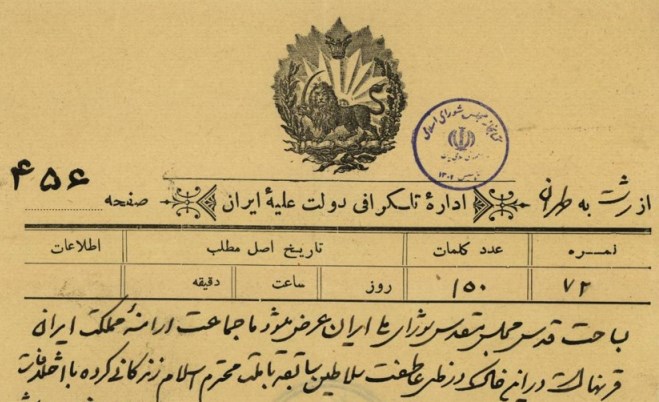 کتابخانه مجلس شورای اسلامی
از رشت به طهران
ادارهٔ تلگرافی دولت علیهٔ ایران
صفحه ۴۵۶
نمره عدد کلمات تاریخ اصل مطلب اطلاعات
۷۲ ۱۵۰ روز ساعت دقیقه
بساحت قدس مجلس مقدس شورای ملی ایران عرض میشود ما جماعت ارامنهٔ مملکت ایران
قرنهاست در این خاک در ظل عاطفت سلاطین سابقه با ملت محترم اسلام زندگانی کرده با